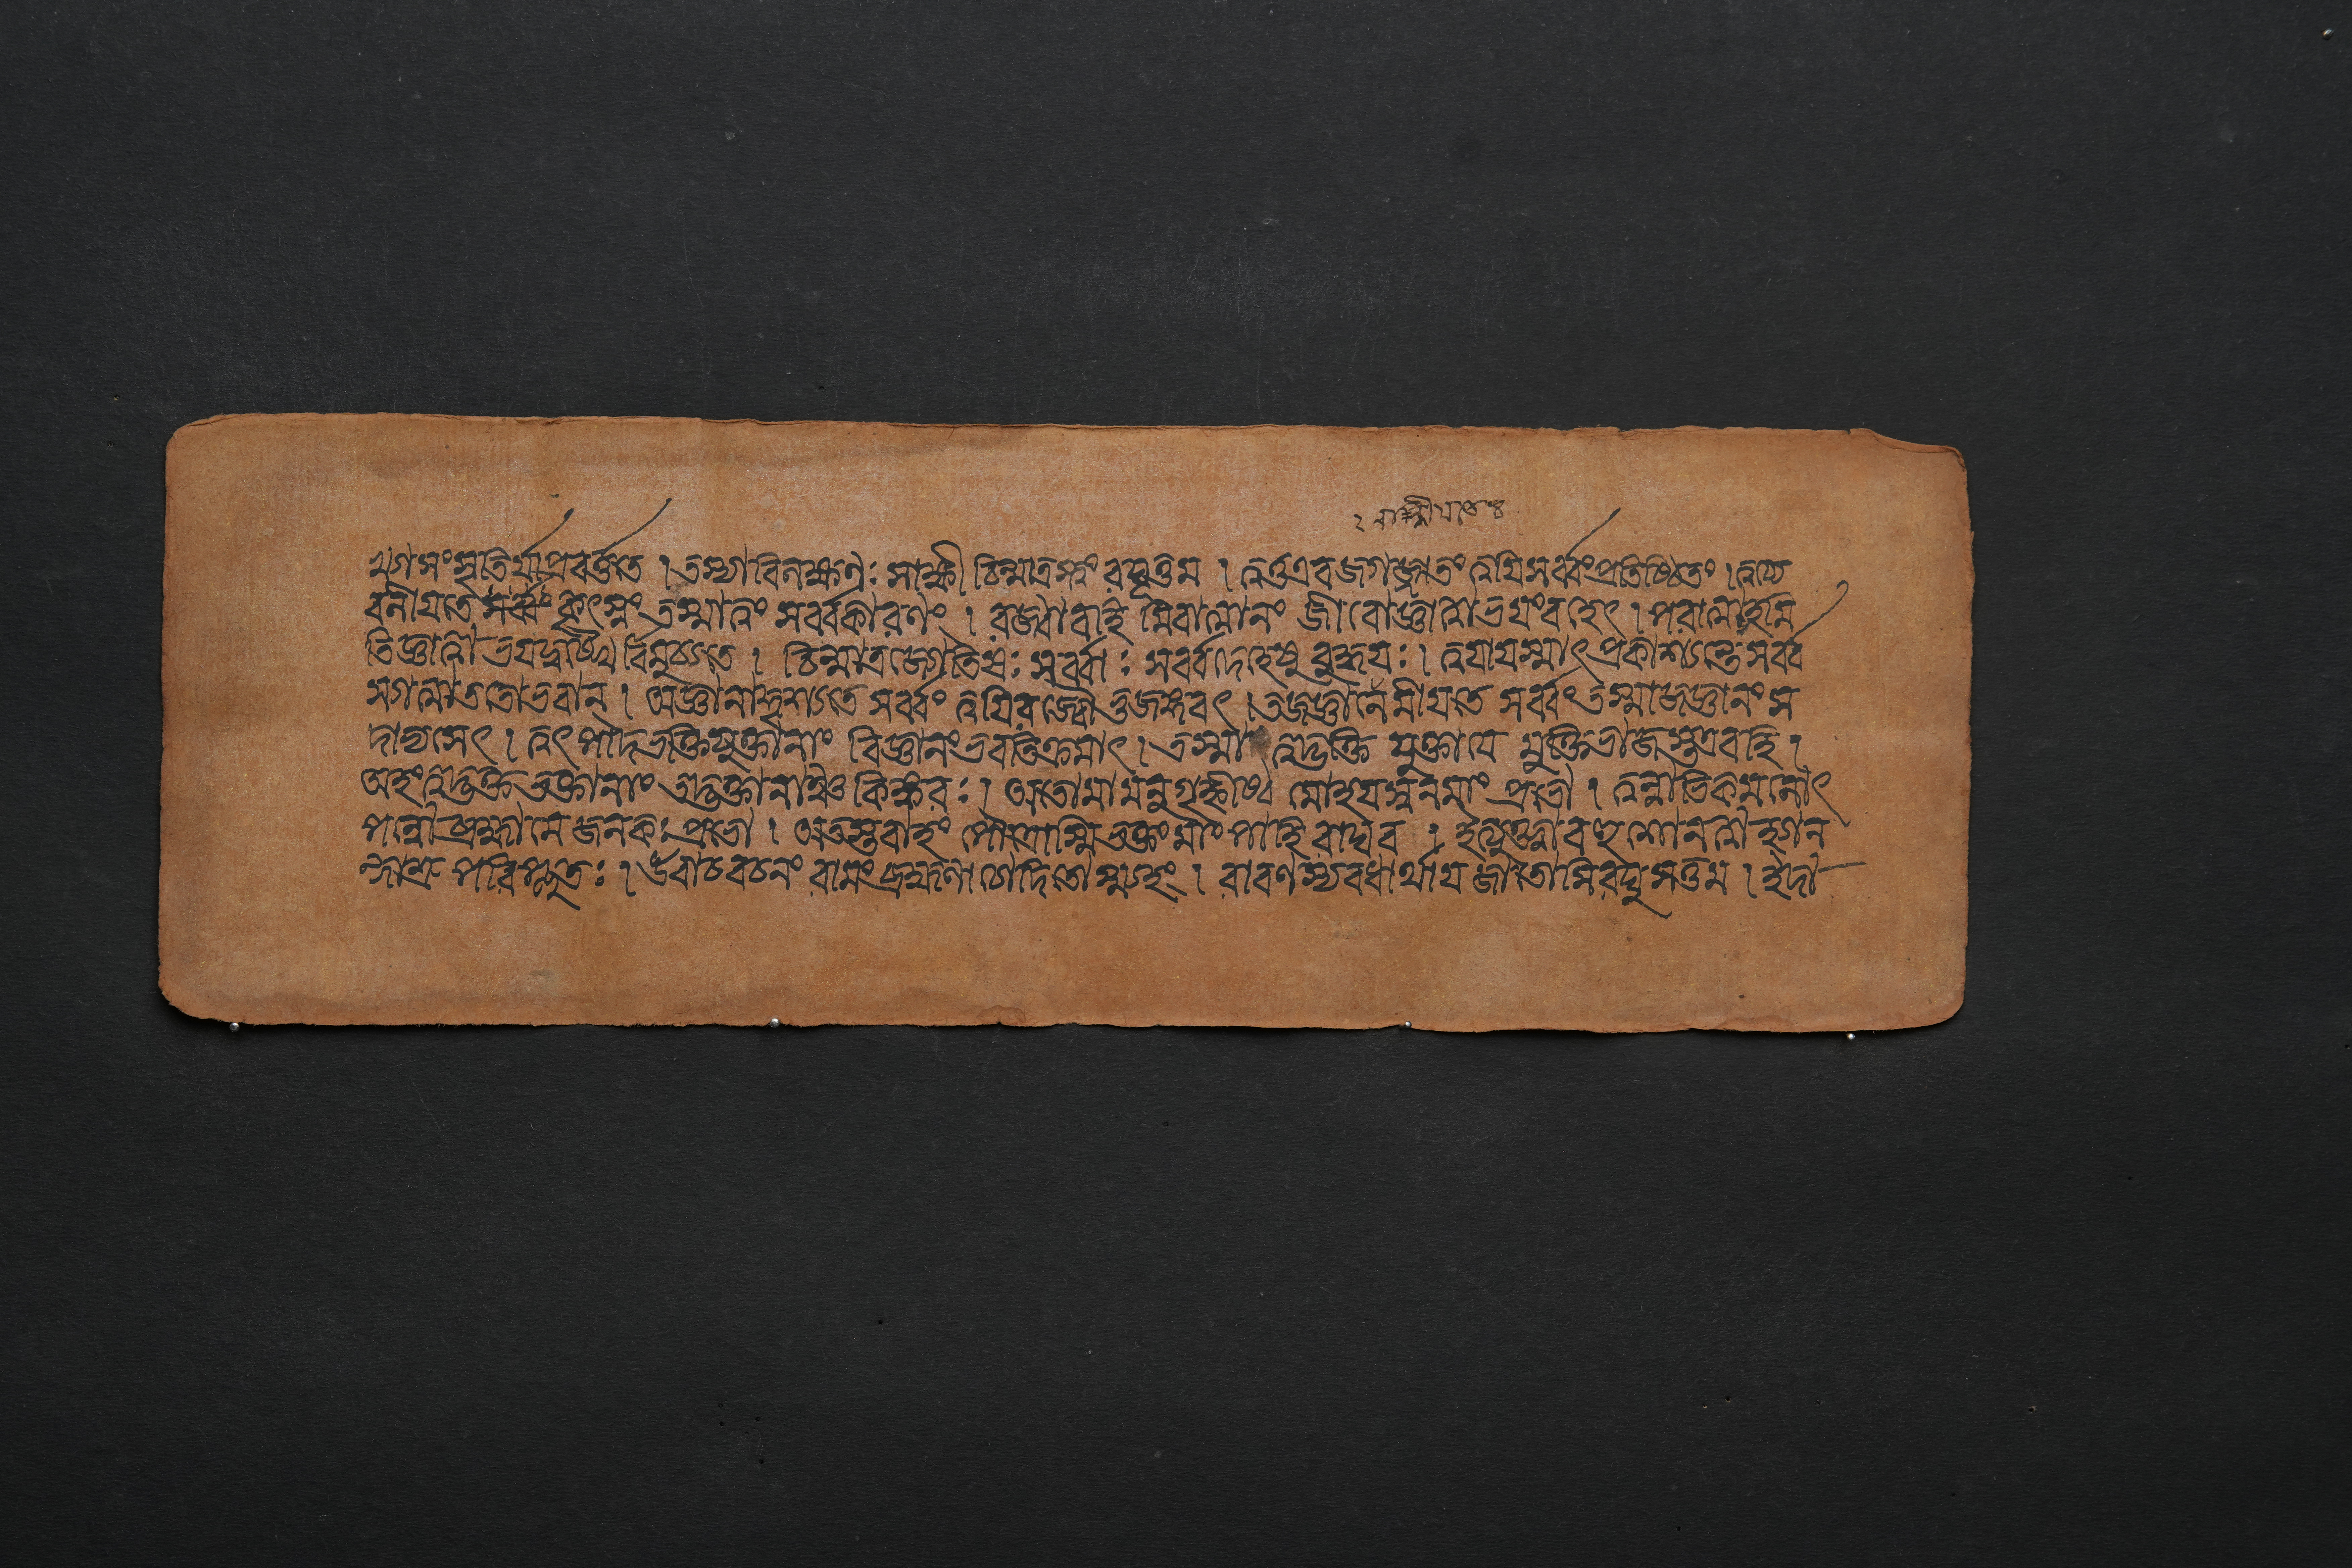 ২ বাল্মীযাতঃ
যোগ সংসৃতির্যাপ্রবর্ত্ততে । তস্যাবিলক্ষণঃ সাক্ষী চিন্মাত্রস্ত্বং রঘূত্তম । ত্বত্তএবজগজ্জাতং ত্বয়িসর্ব্বংপ্রতিষ্ঠিতং । ত্বয্যে
বলীয়তে সর্ব্বং কৃৎস্নং তস্মাত্ত্বং সর্ব্বকারণং । রজ্জাবাবহি মিবাত্মানং জীবোজ্ঞাত্বাভয়ংবহেৎ । পরাত্মাহমি
তিজ্ঞাত্বাভয়দুঃখৈর্বিমুচ্যতে । চিন্মাত্রজ্যোতিষঃ সর্ব্বাঃ সর্ব্বদেহেষু বুদ্ধয়ঃ । ত্বয়াযস্মাৎপ্রকাশ্যন্তে সর্ব্ব
স্যাত্মাততোভবান্ । অজ্ঞানান্ন্যস্যতে সর্ব্বং ত্বয়িরজ্জৌভুজঙ্গবৎ । ত্বজ্জ্ঞানেলীয়তে সর্ব্বং তস্মাজ্জ্ঞানং স
দাভ্যসেৎ । ত্বৎপাদভক্তিযুক্তানাং বিজ্ঞানংভবতিক্রমাৎ । তস্মাৎ ত্বদ্ভক্তি যুক্তাযে মুক্তিভাজস্তএবহি ।
অহংত্বদ্ভক্তভক্তানাং তদ্ভক্তানাঞ্চ কিঙ্করঃ । অতোমামনুগৃহ্ণীষ্ব মোহয়স্বনমাং প্রভো । ত্বন্নাভিকমলোৎ
পন্নোব্রহ্মামে জনকঃ প্রভো । অতস্তবাহং পৌত্রোস্মিভক্তং মাং পাহি রাঘব । ইত্যুক্ত্বাবহুশোনত্বাস্বান
ন্দাশ্রু পরিপ্লুতঃ । উবাচবচনং রামংব্রহ্মণাচোদিতোস্ম্যহং । রাবণস্যবধার্থায় জাতোসিরঘুসত্তম । ইদা